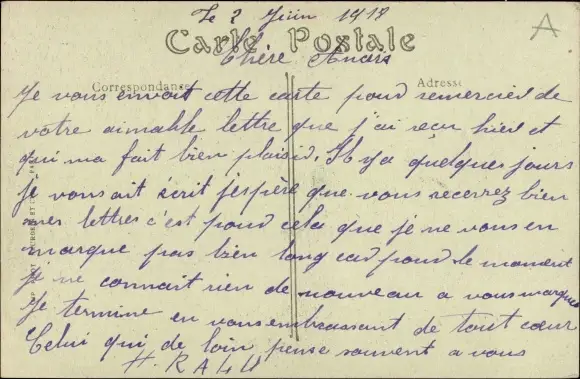 Le 2 Juin 1918
A
Carte Postale
Chère Anaïs
Correspondance
Adresse
Je vous envoit cette carte pour remercier de
votre aimable lettre que j'ai reçu hier et
qui ma fait bien plaisir. Il y a quelques jours
Je vous ait écrit j'espère que vous recerrez bien
mes lettres c'est pour cela que je ne vous en
marque pas bien long car pour le moment
Je ne connait rien de nouveau a vous marquer
Je termine en vous embrassant de tout cœur
Celui qui de loin pense souvent a vous